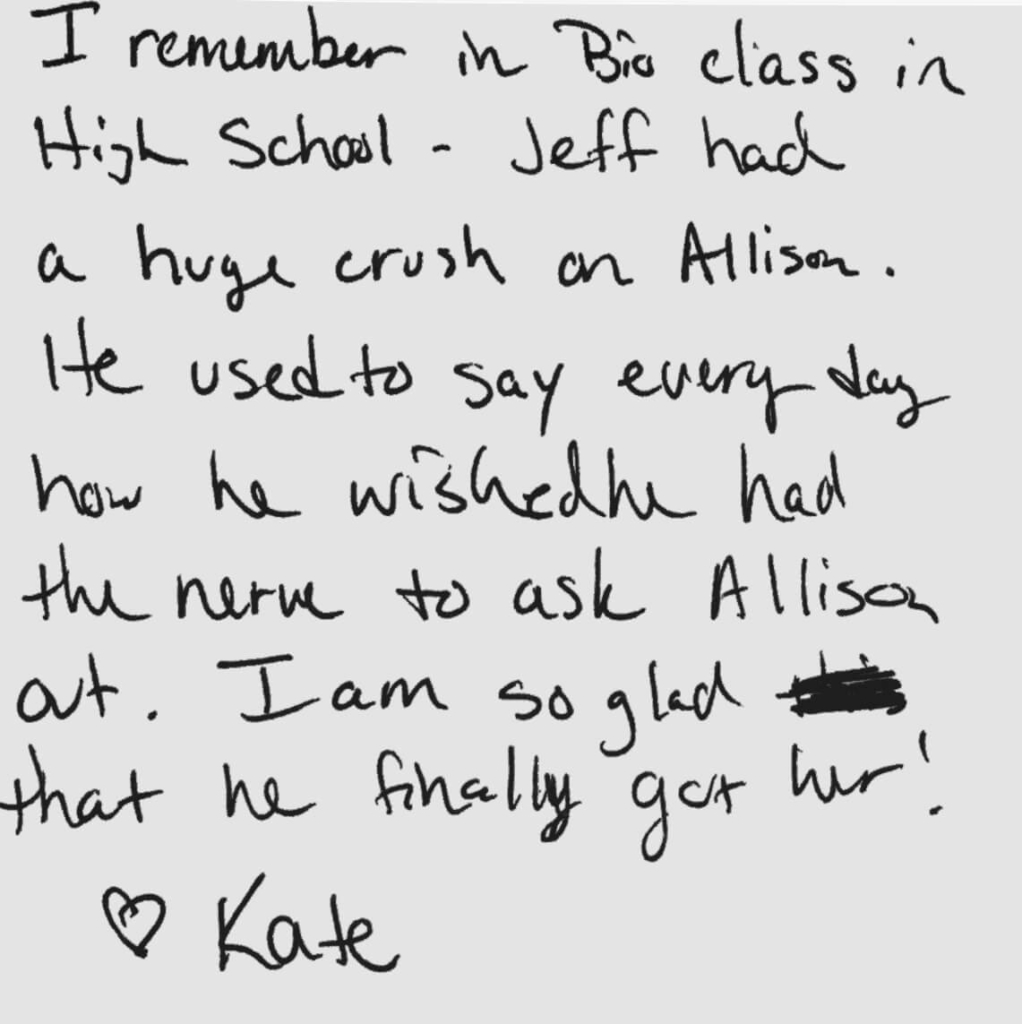 I remember in Bio class in
High School - Jeff had
a huge crush on Allison.
He used to say every day
how he wished he had
the nerve to ask Allison
out. I am so glad
that he finally got her!
♡ Kate